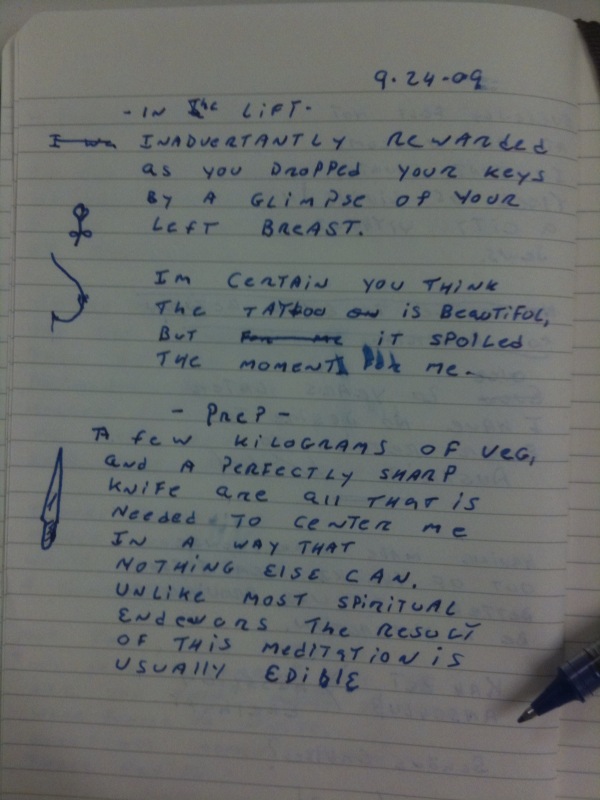 9.24.09
- IN The LiFT -
I wa INADVERTANTLY REWARDED
AS YOU DROPPED YOUR KEYS
BY A GLIMPSE OF YOUR
LEFT BREAST.
IM CERTAIN YOU THINK
THE TATTOO ON IS BEAUTIFUL,
BUT FOR ME IT SPOILED
THE MOMENT FOR ME.
- PREP -
A FEW KILOGRAMS OF VEG,
AND A PERFECTLY SHARP
KNIFE ARE ALL THAT IS
NEEDED TO CENTER ME
IN A WAY THAT
NOTHING ELSE CAN.
UNLIKE MOST SPIRITUAL
ENDEVORS THE RESULT
OF THIS MEDITATION IS
USUALLY EDIBLE